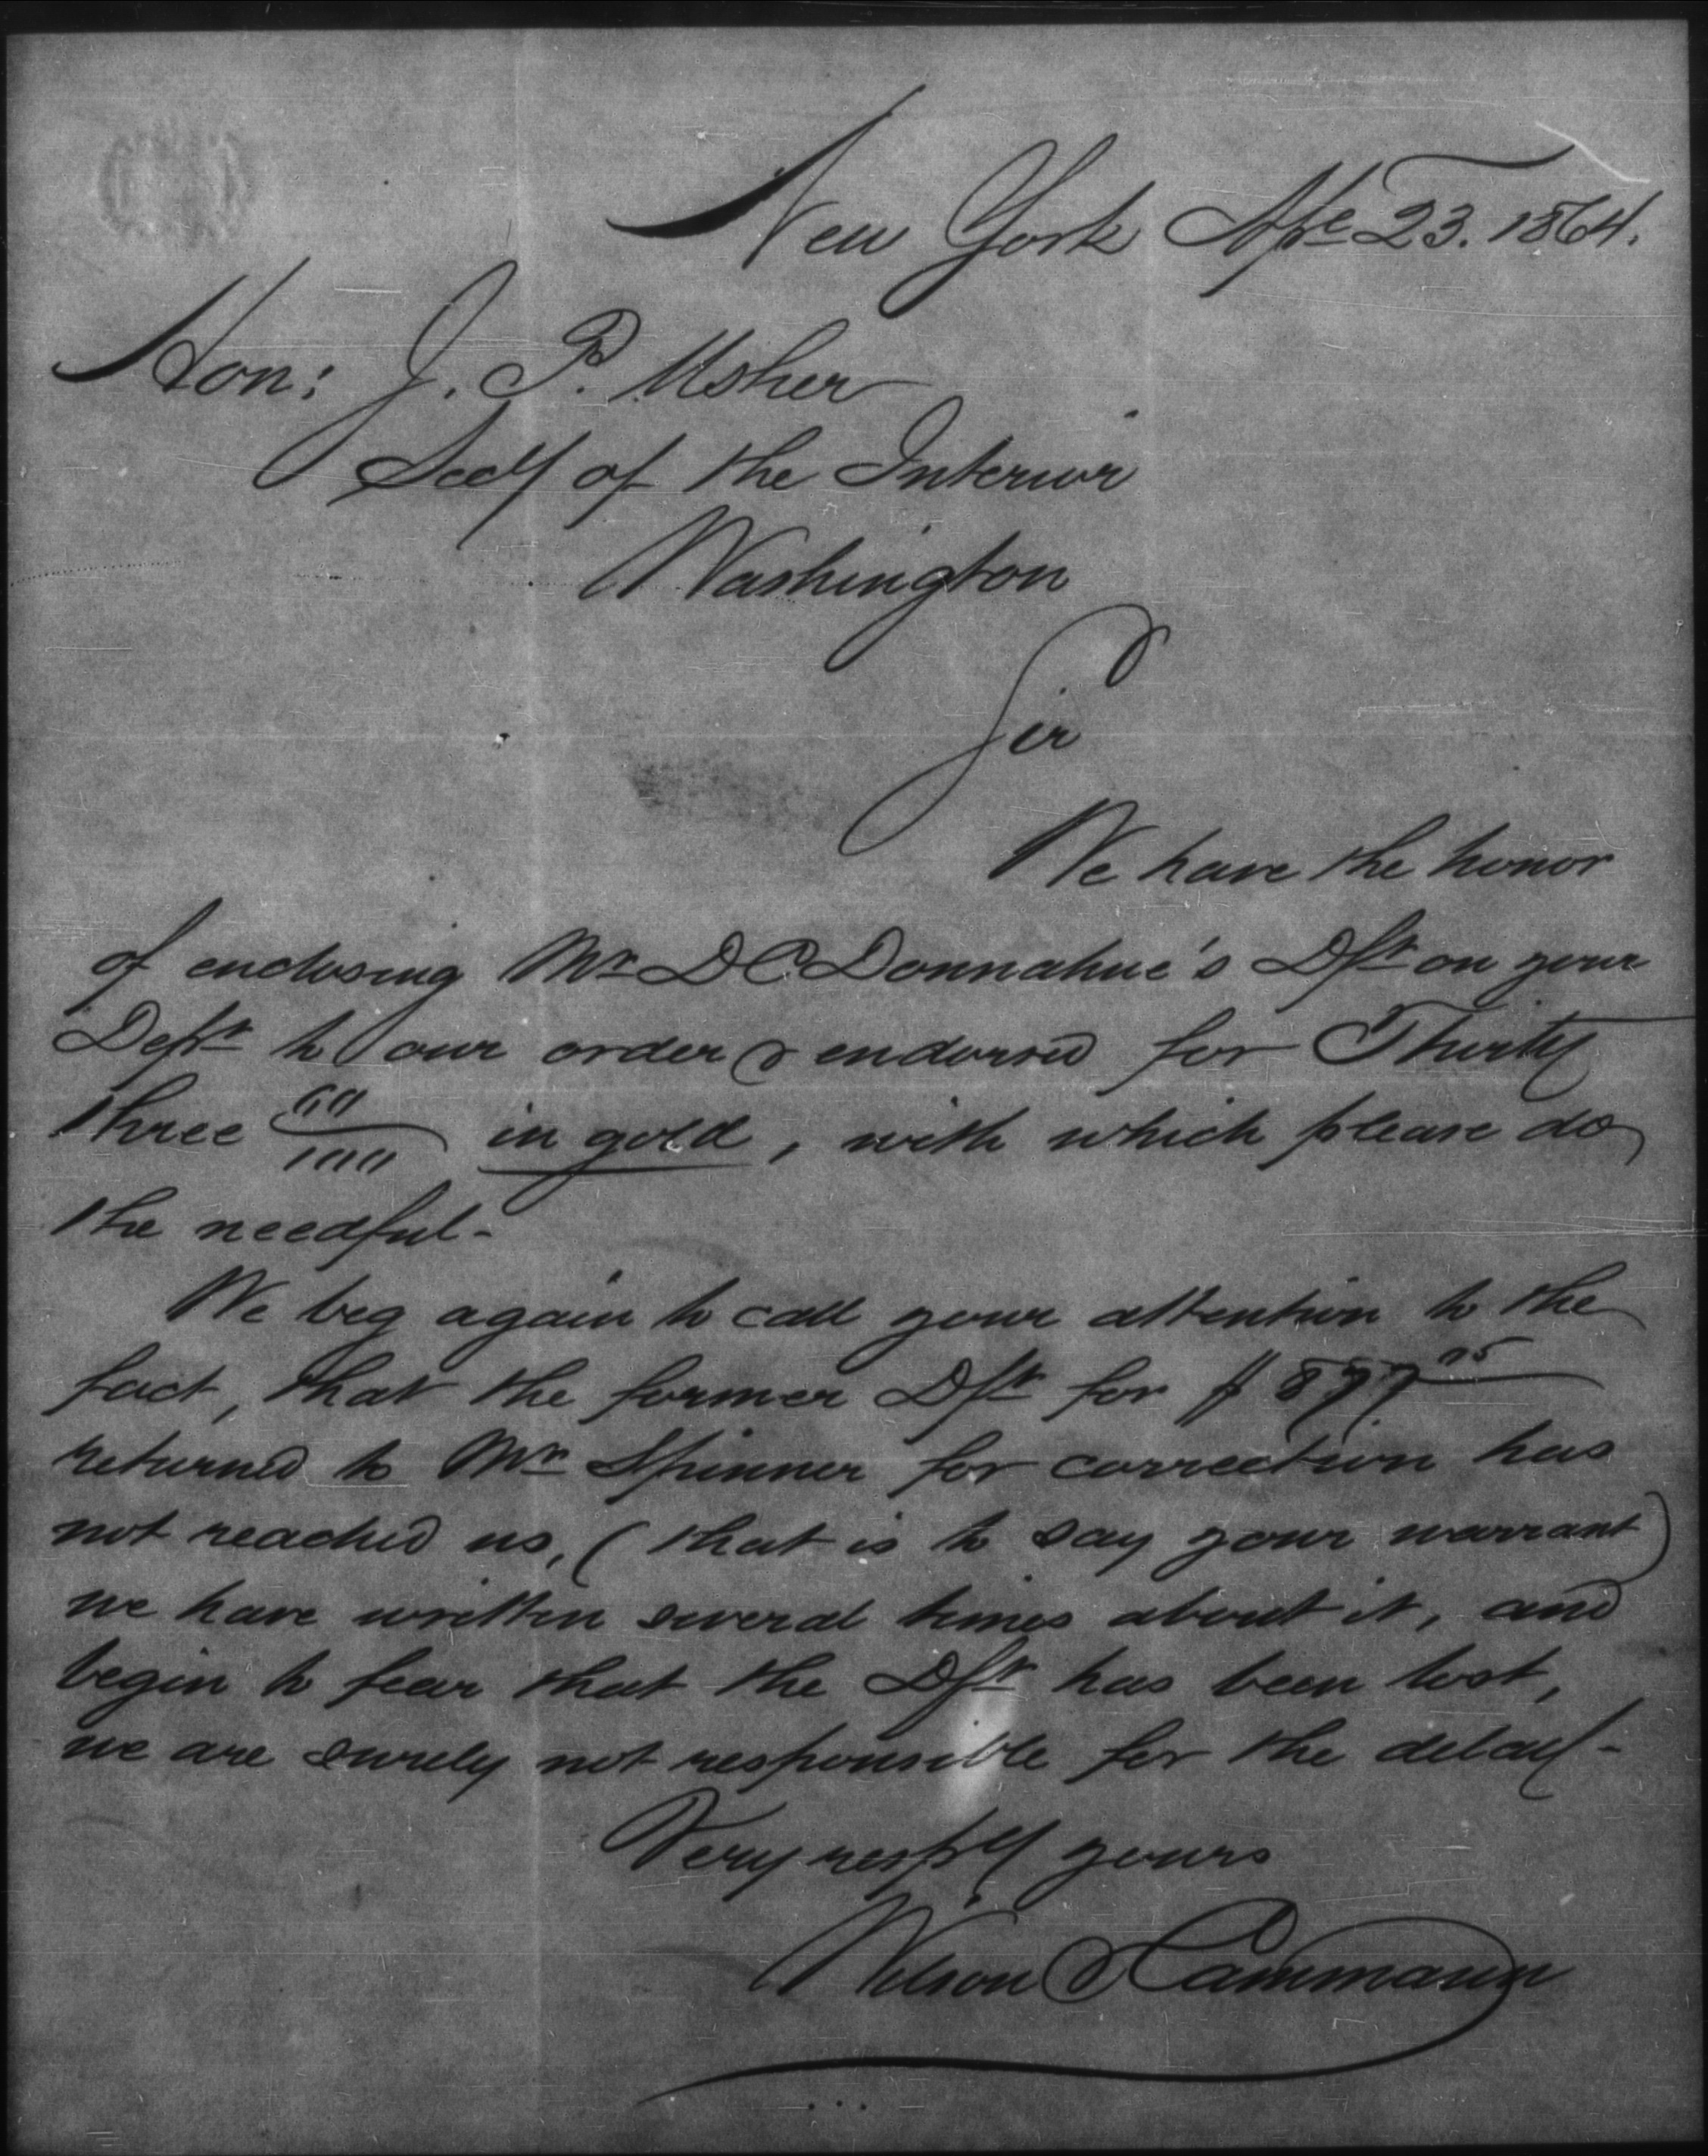 New York Apl 23. 1864.
Hon: J. P. Usher
Secy of the Interior
Washington
Sir
We have the honor
of enclosing Mr D C Donnahue's Dft on your
Dept to our order & endorsed for Thirty
three 00/100 in gold, with which please do
the needful-
We beg again to call your attention to the
fact, that the former Dft for $ 877
returned to Mr Spinner for correction has
not reached us, (that is to say your warrant)
we have written several times about it, and
begin to fear that the Dft has been lost,
we are surely not responsible for the delay-
Very respy yours
Nelson & Cammann